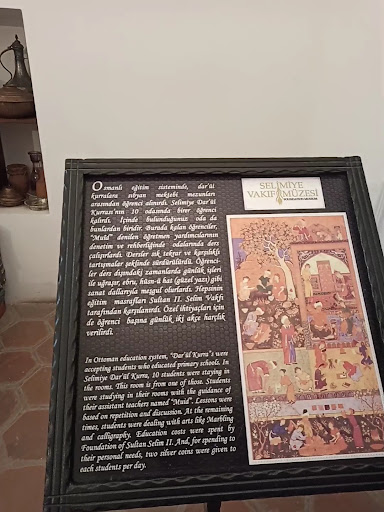 SELİMİYE
VAKIF MÜZESİ
Osmanlı eğitim sisteminde, dar'ül
kurralara sıbyan mektebi mezunları
arasından öğrenci alınırdı. Selimiye Dar'ül
Kurrası'nın 10 odasında birer öğrenci
kalırdı. İçinde bulunduğunuz oda da
bunlardan biridir. Burada kalan öğrenciler,
"Muîd" denilen öğretmen yardımcılarının
denetim ve rehberliğinde odalarında ders
çalışırlardı. Dersler sık tekrar ve karşılıklı
tartışmalar şeklinde sürdürülürdü. Öğrenci-
ler ders dışındaki zamanlarda günlük işleri
ile uğraşır, ebru, hüsn-ü hat (güzel yazı) gibi
sanat dallarıyla meşgul olurlardı. Hepsinin
eğitim masrafları Sultan II. Selim Vakfı
tarafından karşılanırdı. Özel ihtiyaçları için
de öğrenci başına günlük iki akçe harçlık
verilirdi.
In Ottoman education system, "Dar'ül Kurra"s were
accepting students who educated primary schools. In
Selimiye Dar'ül Kurra, 10 students were staying in
the rooms. This room is from one of those. Students
were studying in their rooms with the guidance of
their assistant teachers named "Muid". Lessons were
based on repetition and discussion. At the remaining
times, students were dealing with arts like Marbling
and calligraphy. Education costs were spent by
Foundation of Sultan Selim II. And, for spending to
their personal needs, two silver coins were given to
each students per day.